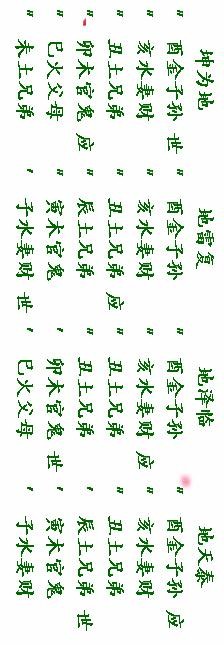 坤为地 地雷复 地泽临 地天泰
〃 酉金子孙 世 〃 酉金子孙 〃 酉金子孙 〃 酉金子孙 应
〃 亥水妻财 〃 亥水妻财 〃 亥水妻财 应 〃 亥水妻财
〃 丑土兄弟 〃 丑土兄弟 应 〃 丑土兄弟 〃 丑土兄弟
〃 卯木官鬼 应 〃 辰土兄弟 〃 丑土兄弟 ′ 辰土兄弟 世
〃 巳火父母 〃 寅木官鬼 ′ 卯木官鬼 世 ′ 寅木官鬼
〃 未土兄弟 ′ 子水妻财 世 ′ 巳火父母 ′ 子水妻财